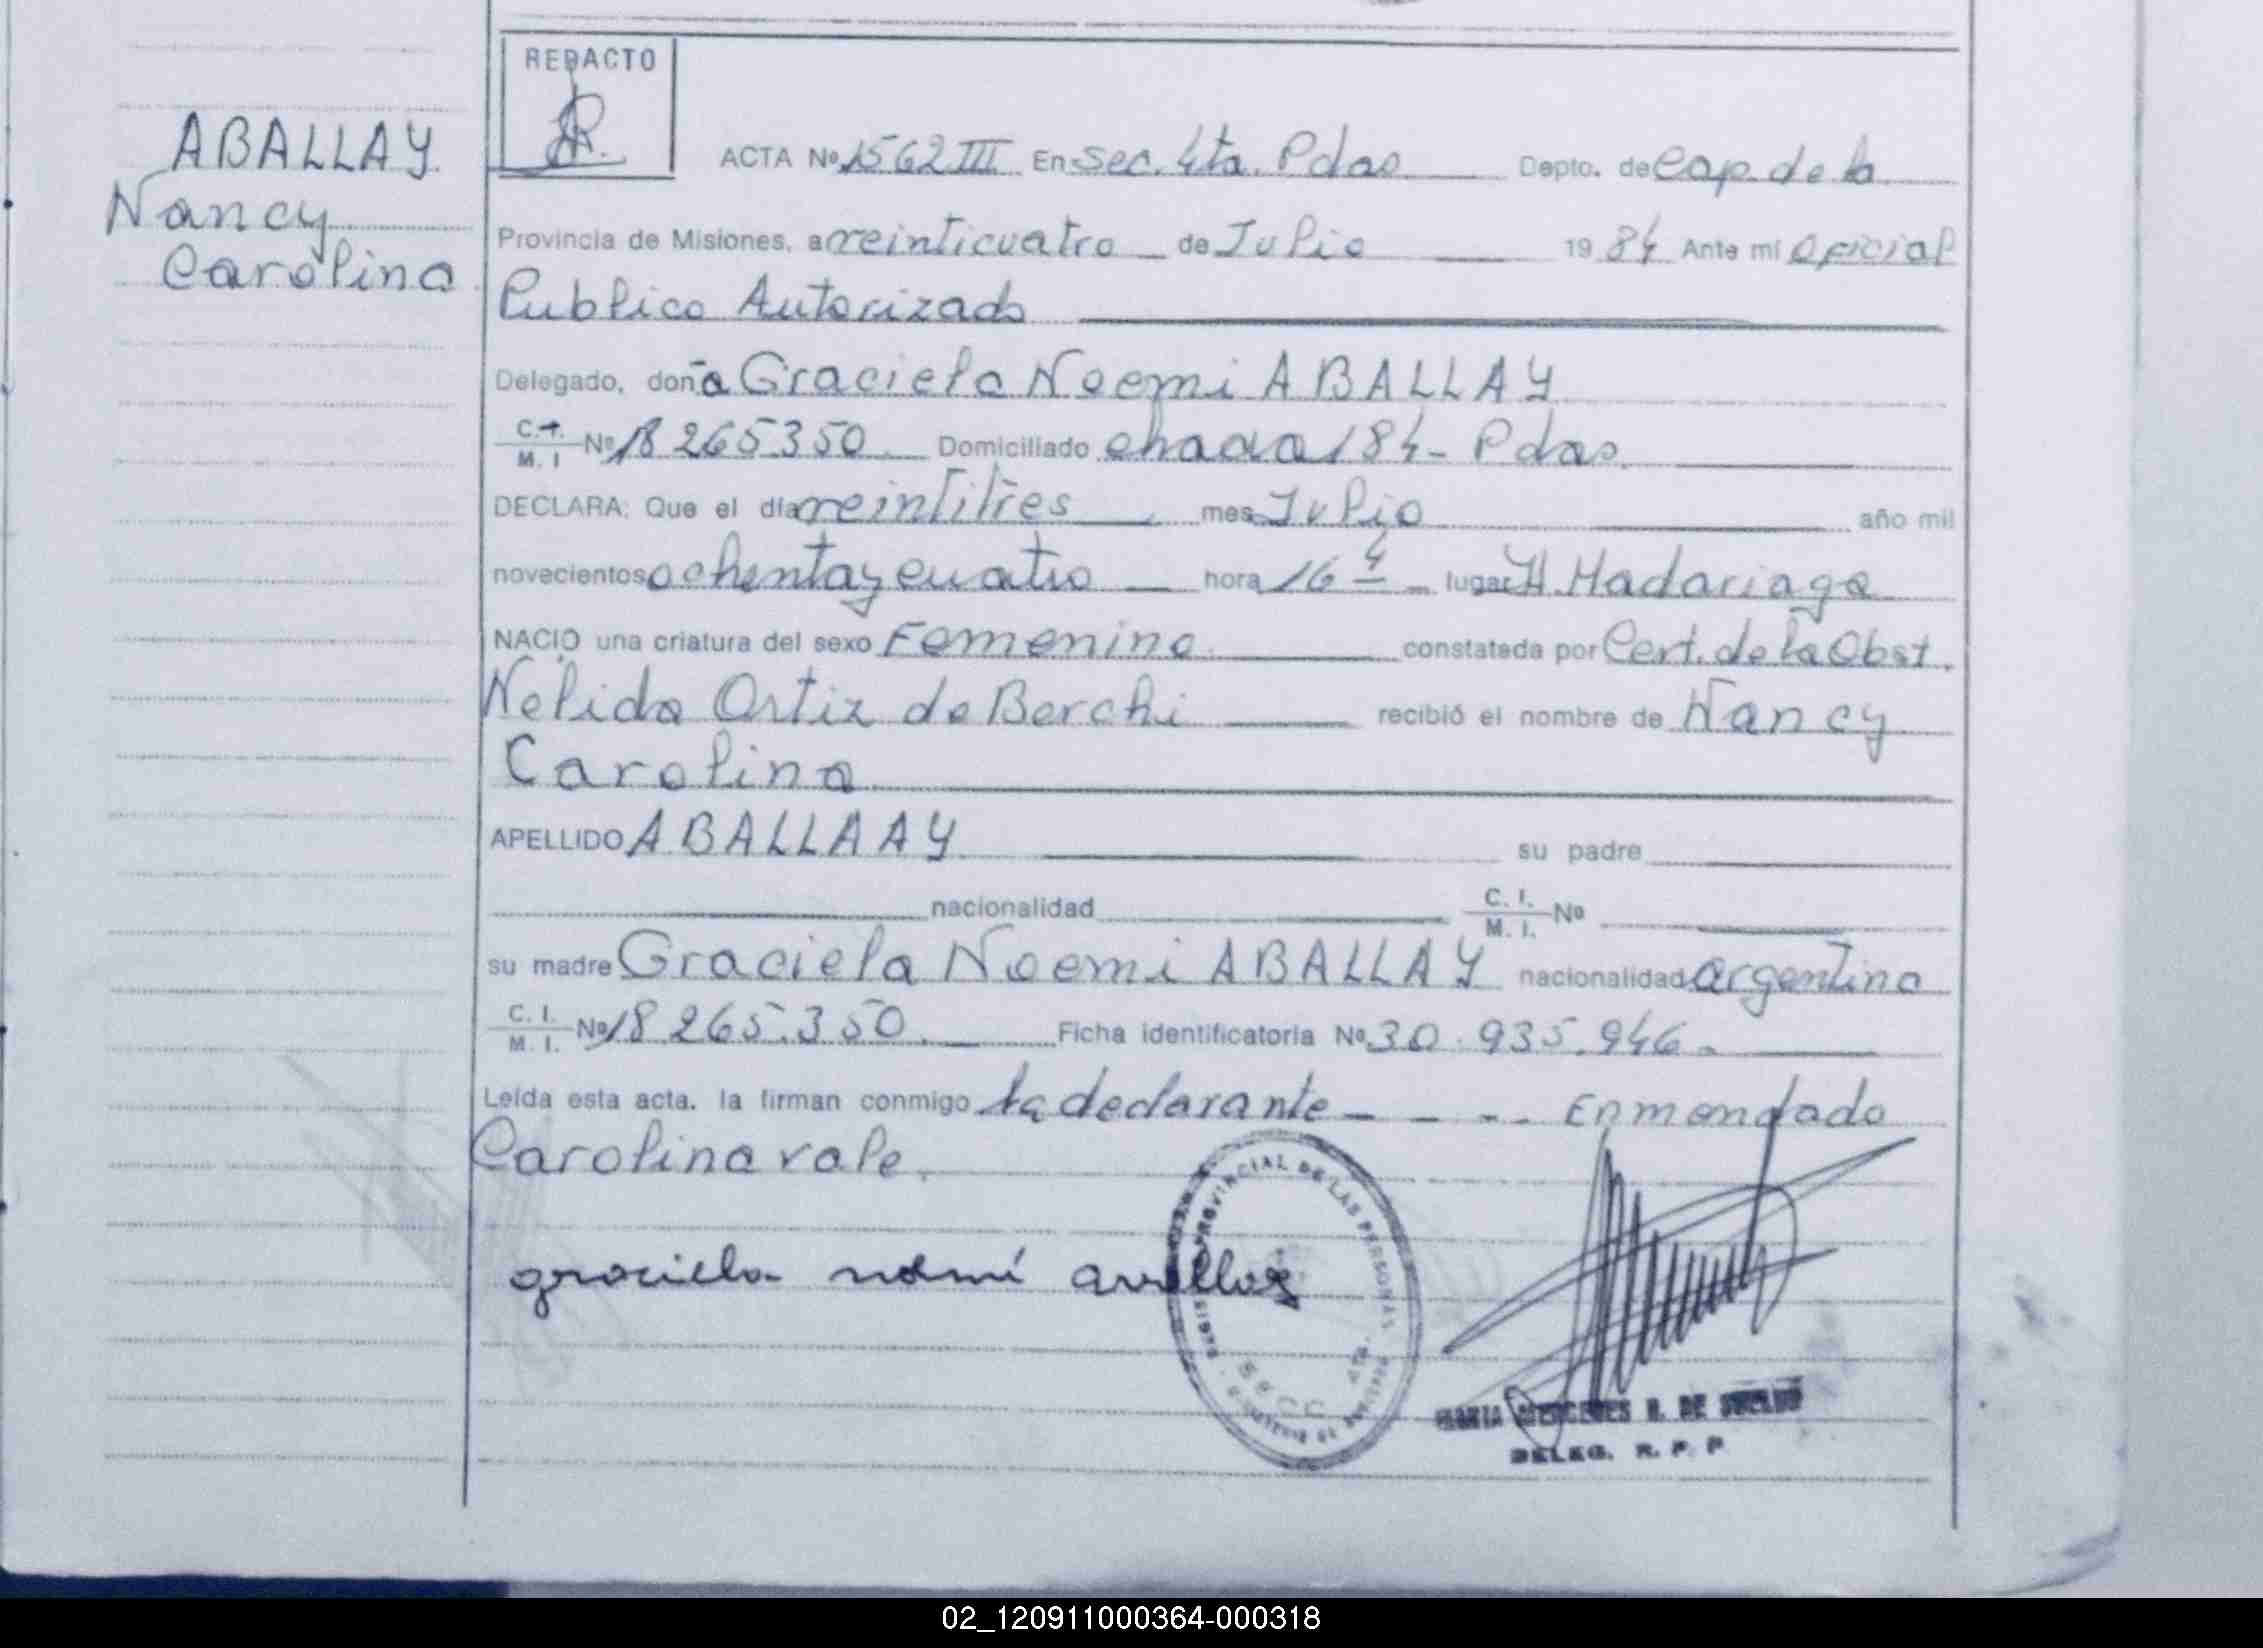 REDACTO
ABALLAY
Nancy
Carolina
ACTA Nº 1562 III En Sec. 4ta. Pdas Depto. de Cap. de la
Provincia de Misiones, a veinticuatro de Julio 19 84 Ante mí Oficial
Publico Autorizado
Delegado, doña Graciela Noemi ABALLAY
C.I. M. I Nº 18 265.350 Domiciliado chacra 184 - Pdas.
DECLARA: Que el día veintitres mes Julio año mil
novecientos ochenta y cuatro hora 16 4 lugar H. Madariaga
NACIO una criatura del sexo Femenino constatada por Cert. de la Obst.
Nelida Ortiz de Berchi recibió el nombre de Nancy
Carolina
APELLIDO ABALLAAY su padre
nacionalidad C. I. M. I. Nº
su madre Graciela Noemi ABALLAY nacionalidad argentina
C. I. M. I. Nº 18 265.350. Ficha identificatoria Nº 30.935.946.-
Leída esta acta. la firman conmigo la declarante - - - - Enmendado
Carolina vale.
PROVINCIAL DE LAS PERSONAS
SECC 4TA.
graciela noemí
MARIA MERCEDES R. DE
DELEG. R. P. P
02_120911000364-000318